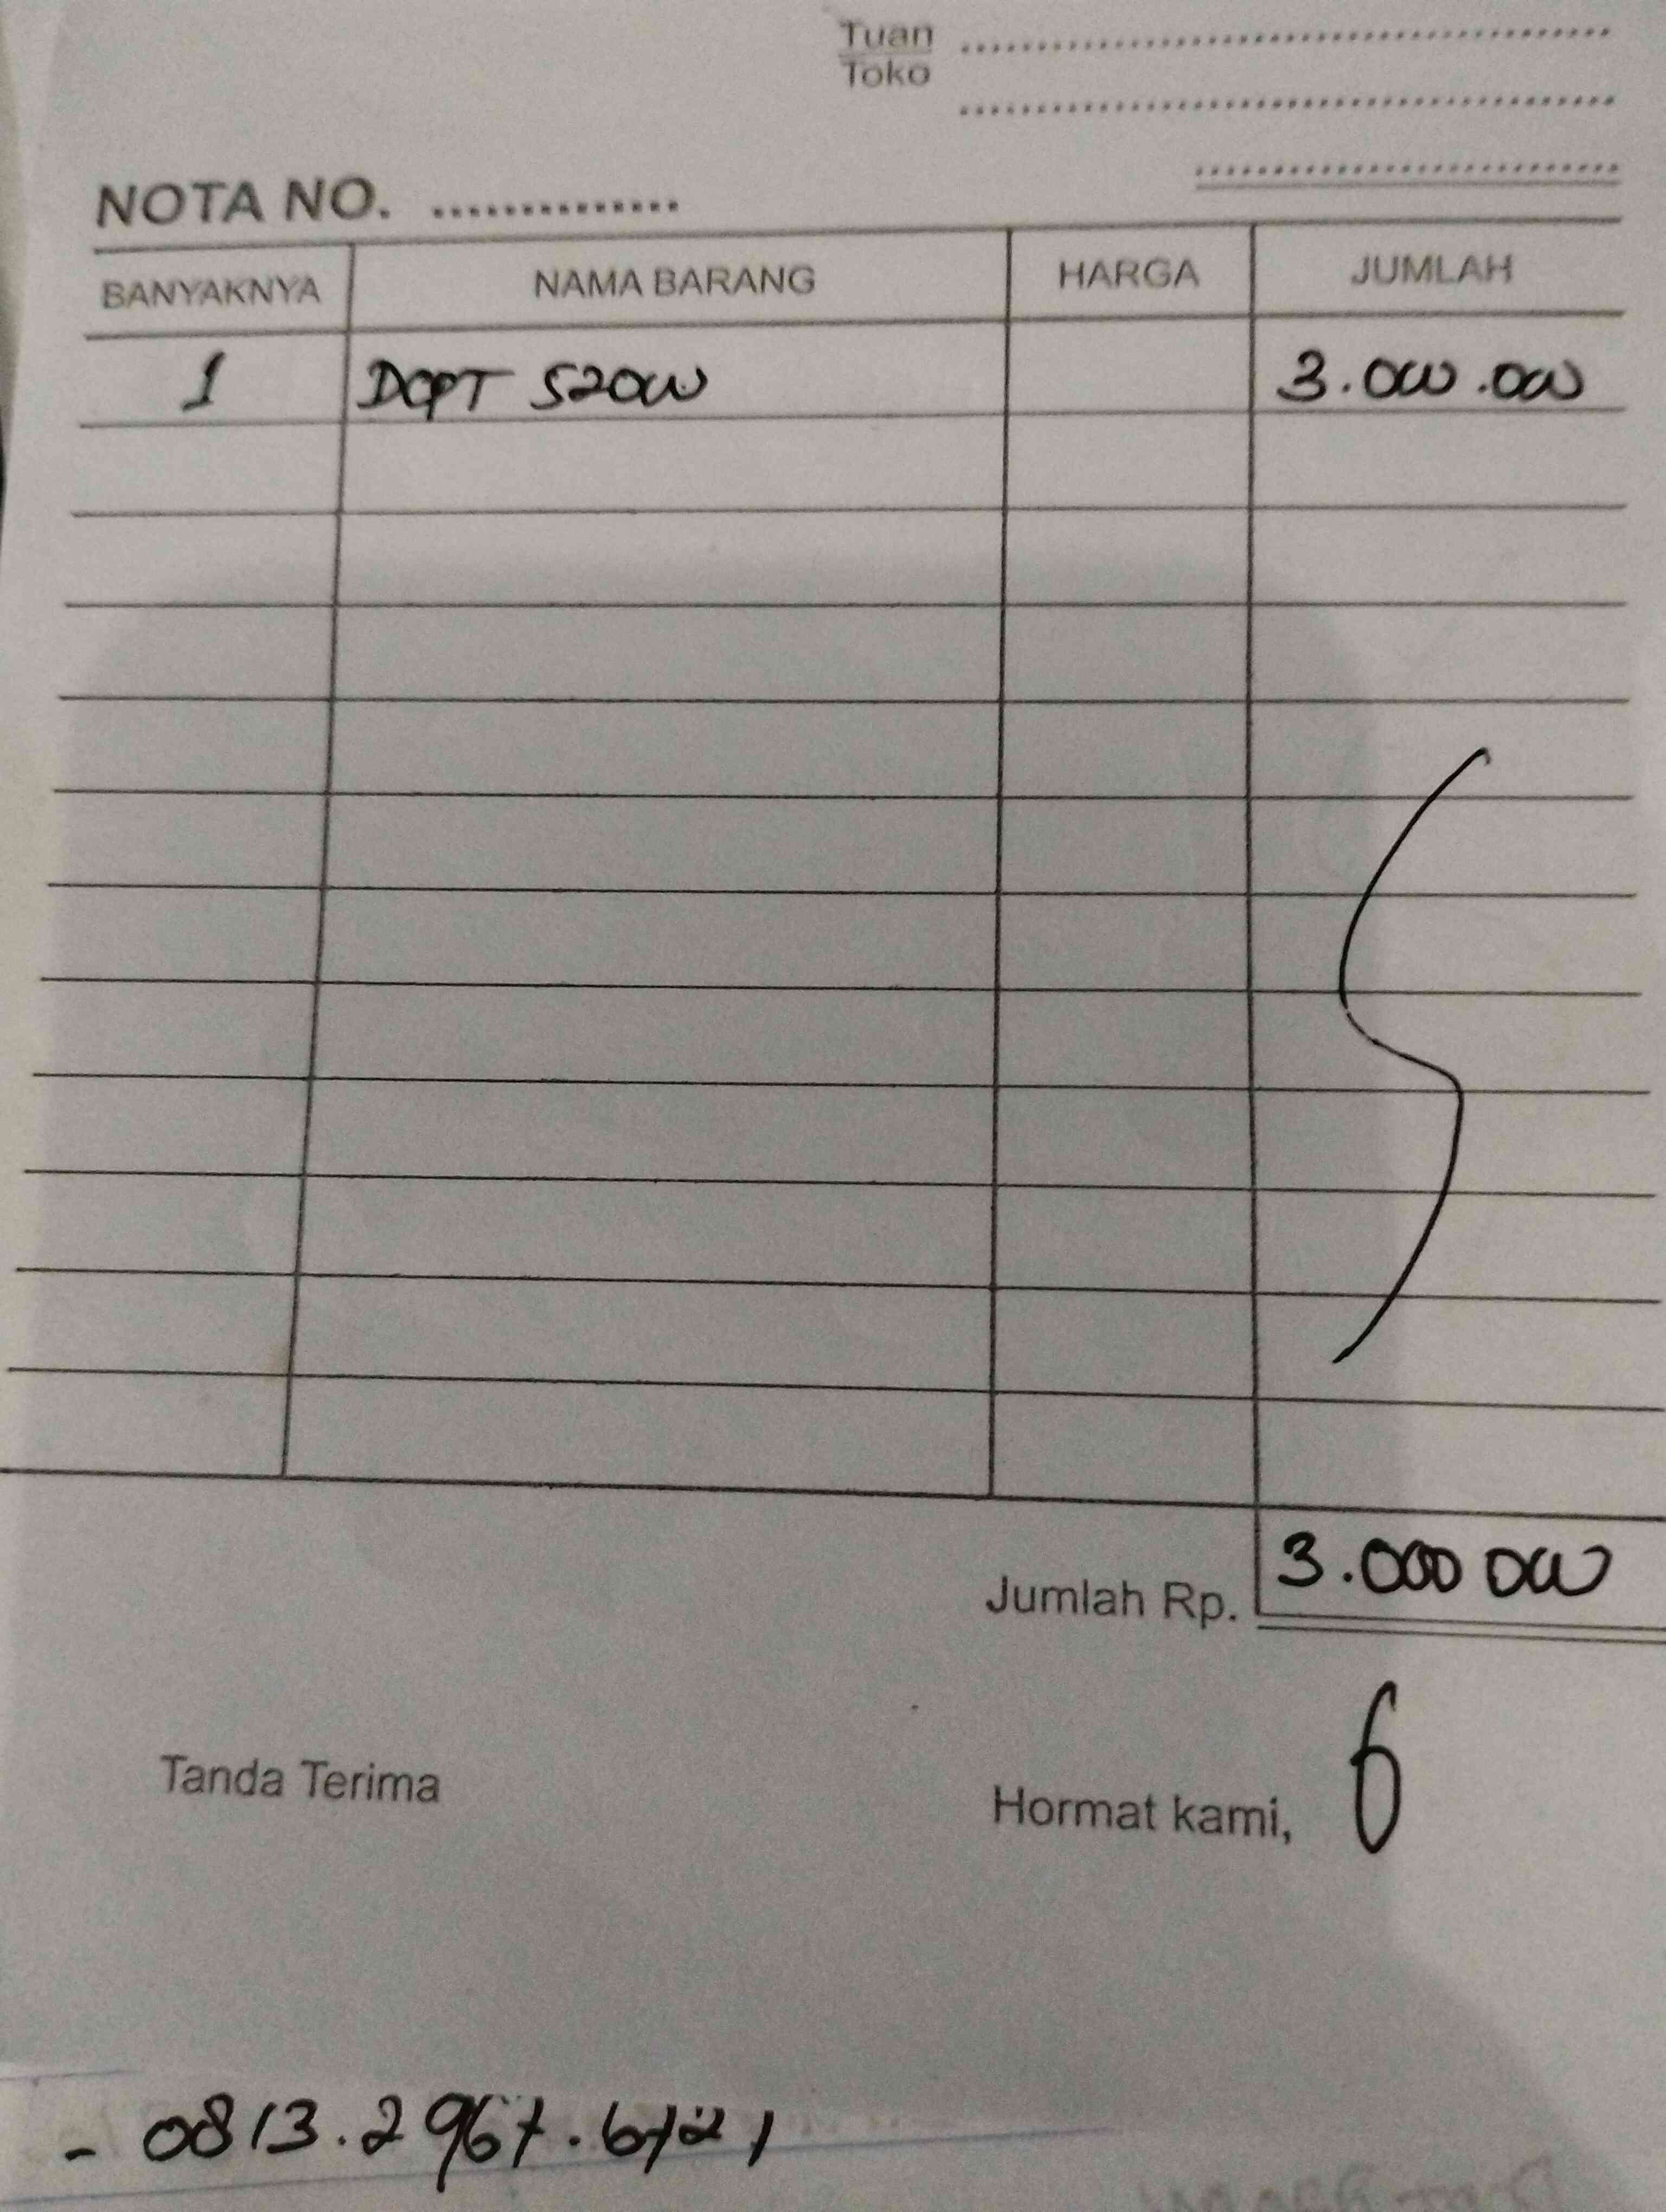 Tuan
Toko
NOTA NO. ..............
BANYAKNYA NAMA BARANG HARGA JUMLAH
1 DCPT 520W 3.000.000
Jumlah Rp. 3.000 000
Tanda Terima
Hormat kami,
- 0813.2967.6121